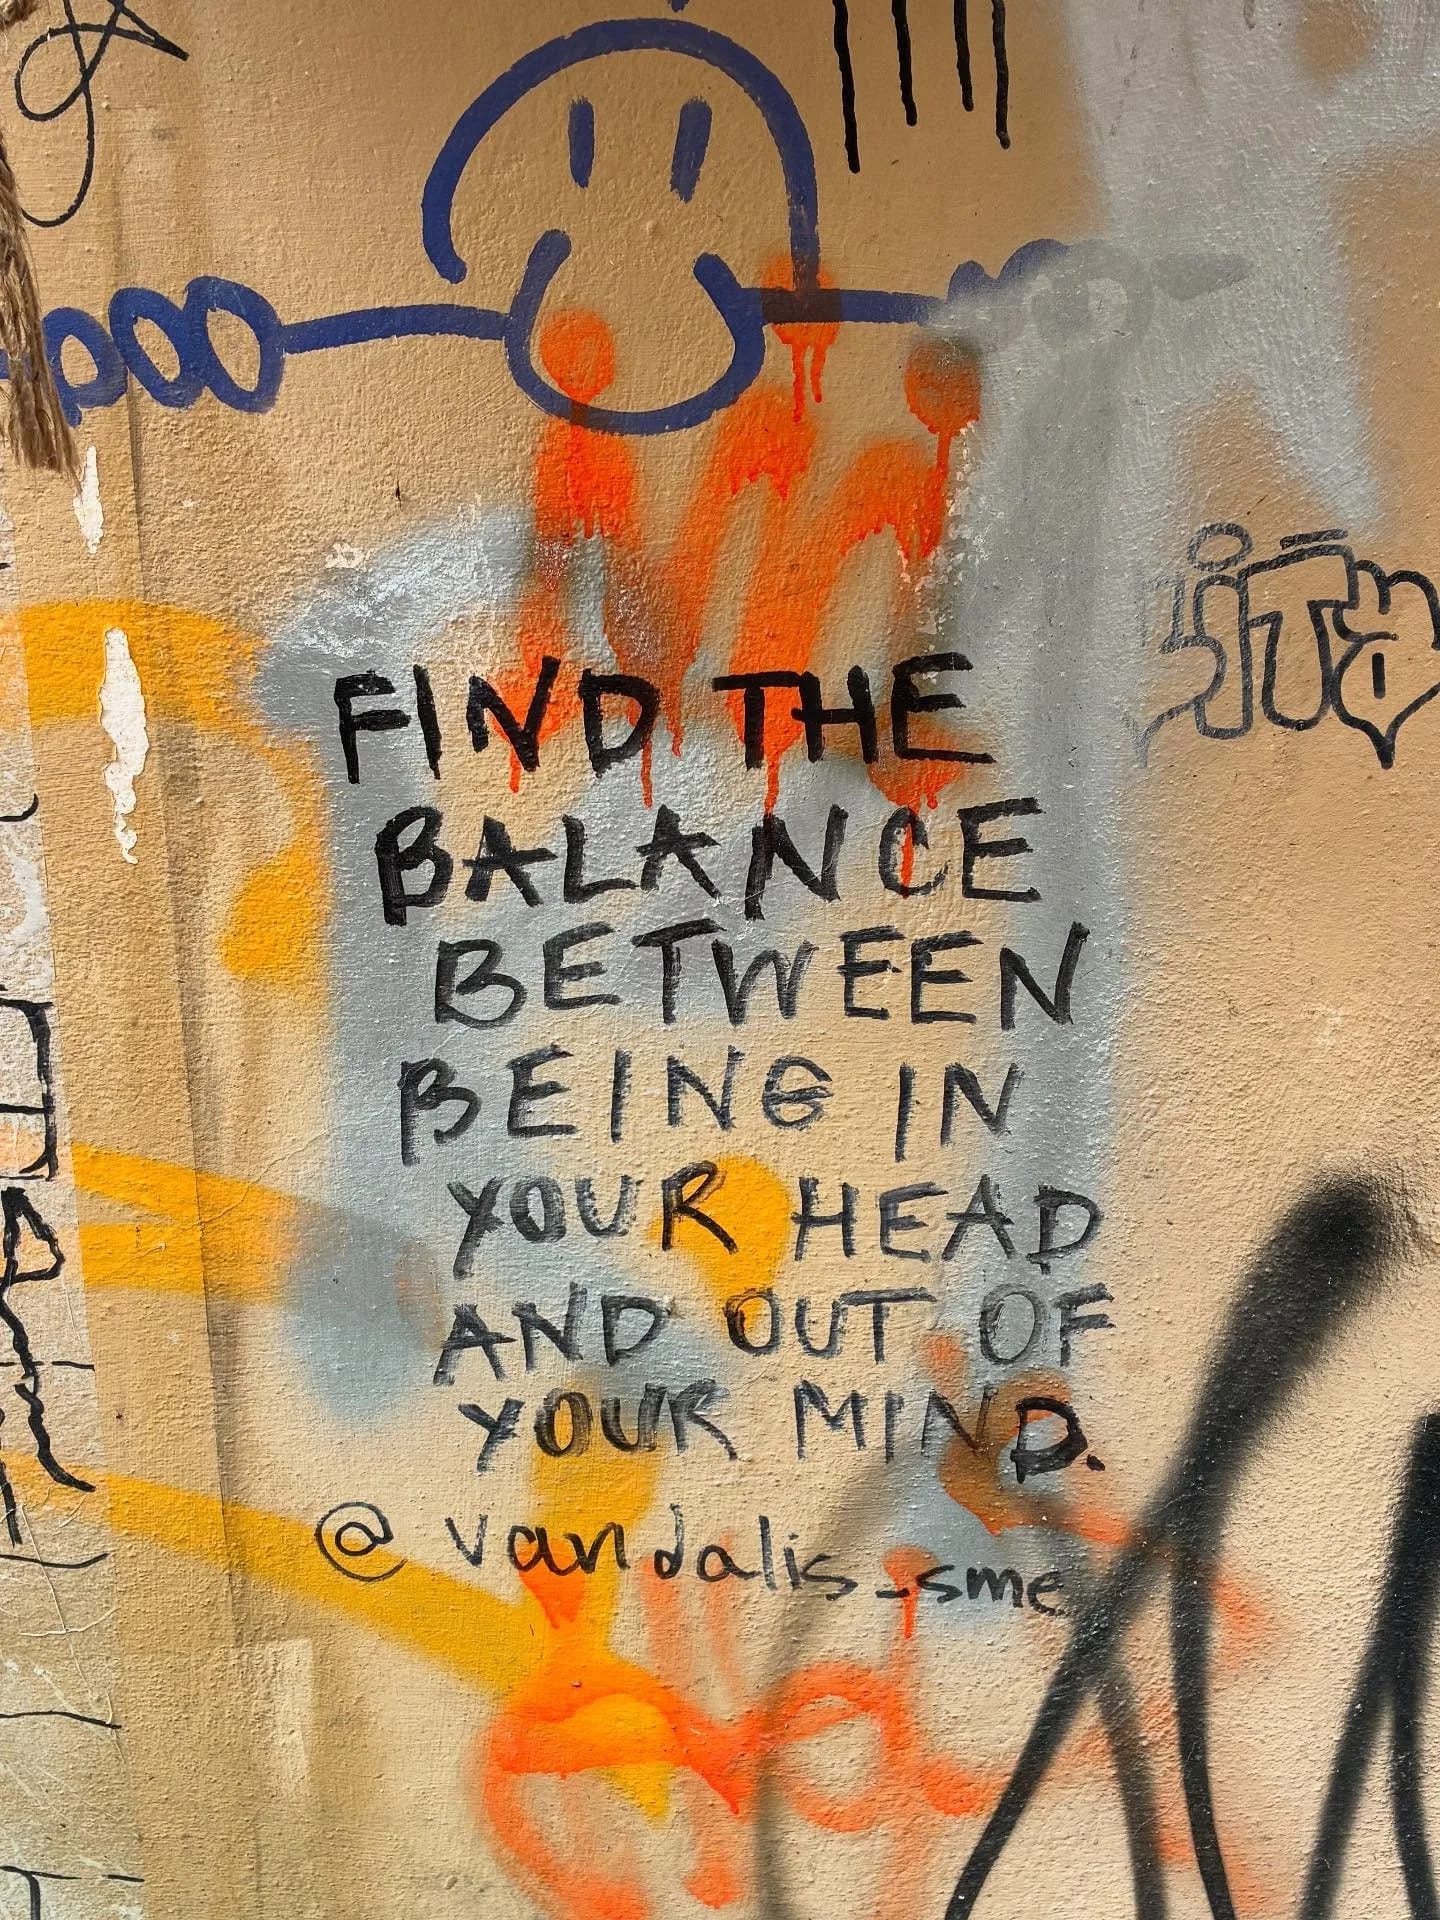 FIND THE
BALANCE
BETWEEN
BEING IN
YOUR HEAD
AND OUT OF
YOUR MIND.
@vandalis_sme